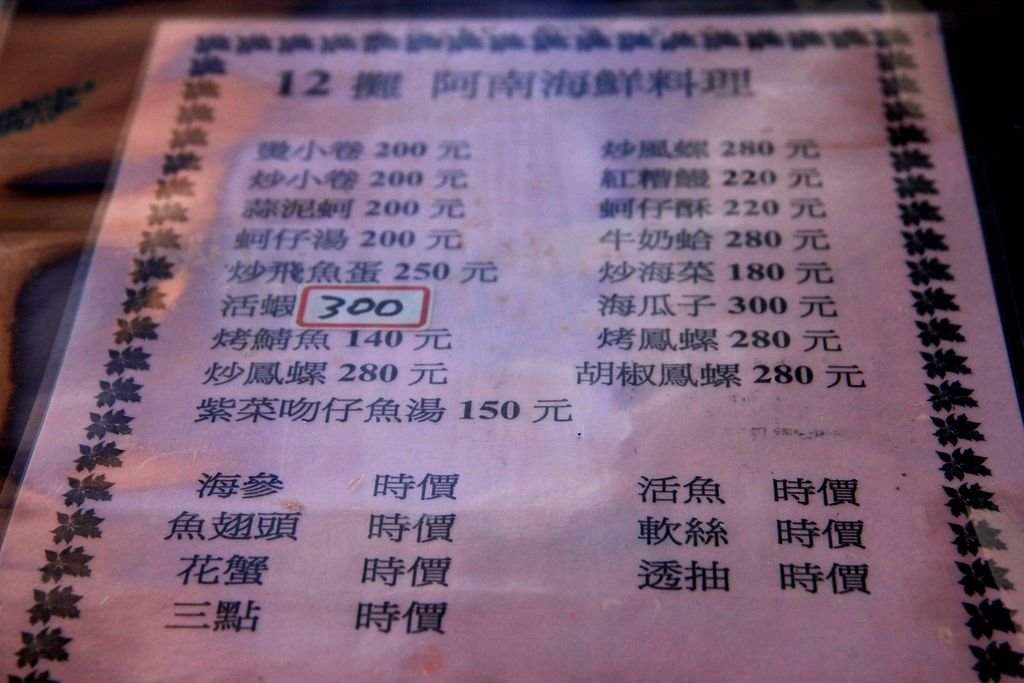 12 攤 阿南海鮮料理
燙小卷 200 元 炒鳳螺 280 元
炒小卷 200 元 紅糟鰻 220 元
蒜泥蚵 200 元 蚵仔酥 220 元
蚵仔湯 200 元 牛奶蛤 280 元
炒飛魚蛋 250 元 炒海菜 180 元
活蝦 300 海瓜子 300 元
烤鯖魚 140 元 烤鳳螺 280 元
炒鳳螺 280 元 胡椒鳳螺 280 元
紫菜吻仔魚湯 150 元
海參 時價 活魚 時價
魚翅頭 時價 軟絲 時價
花蟹 時價 透抽 時價
三點 時價